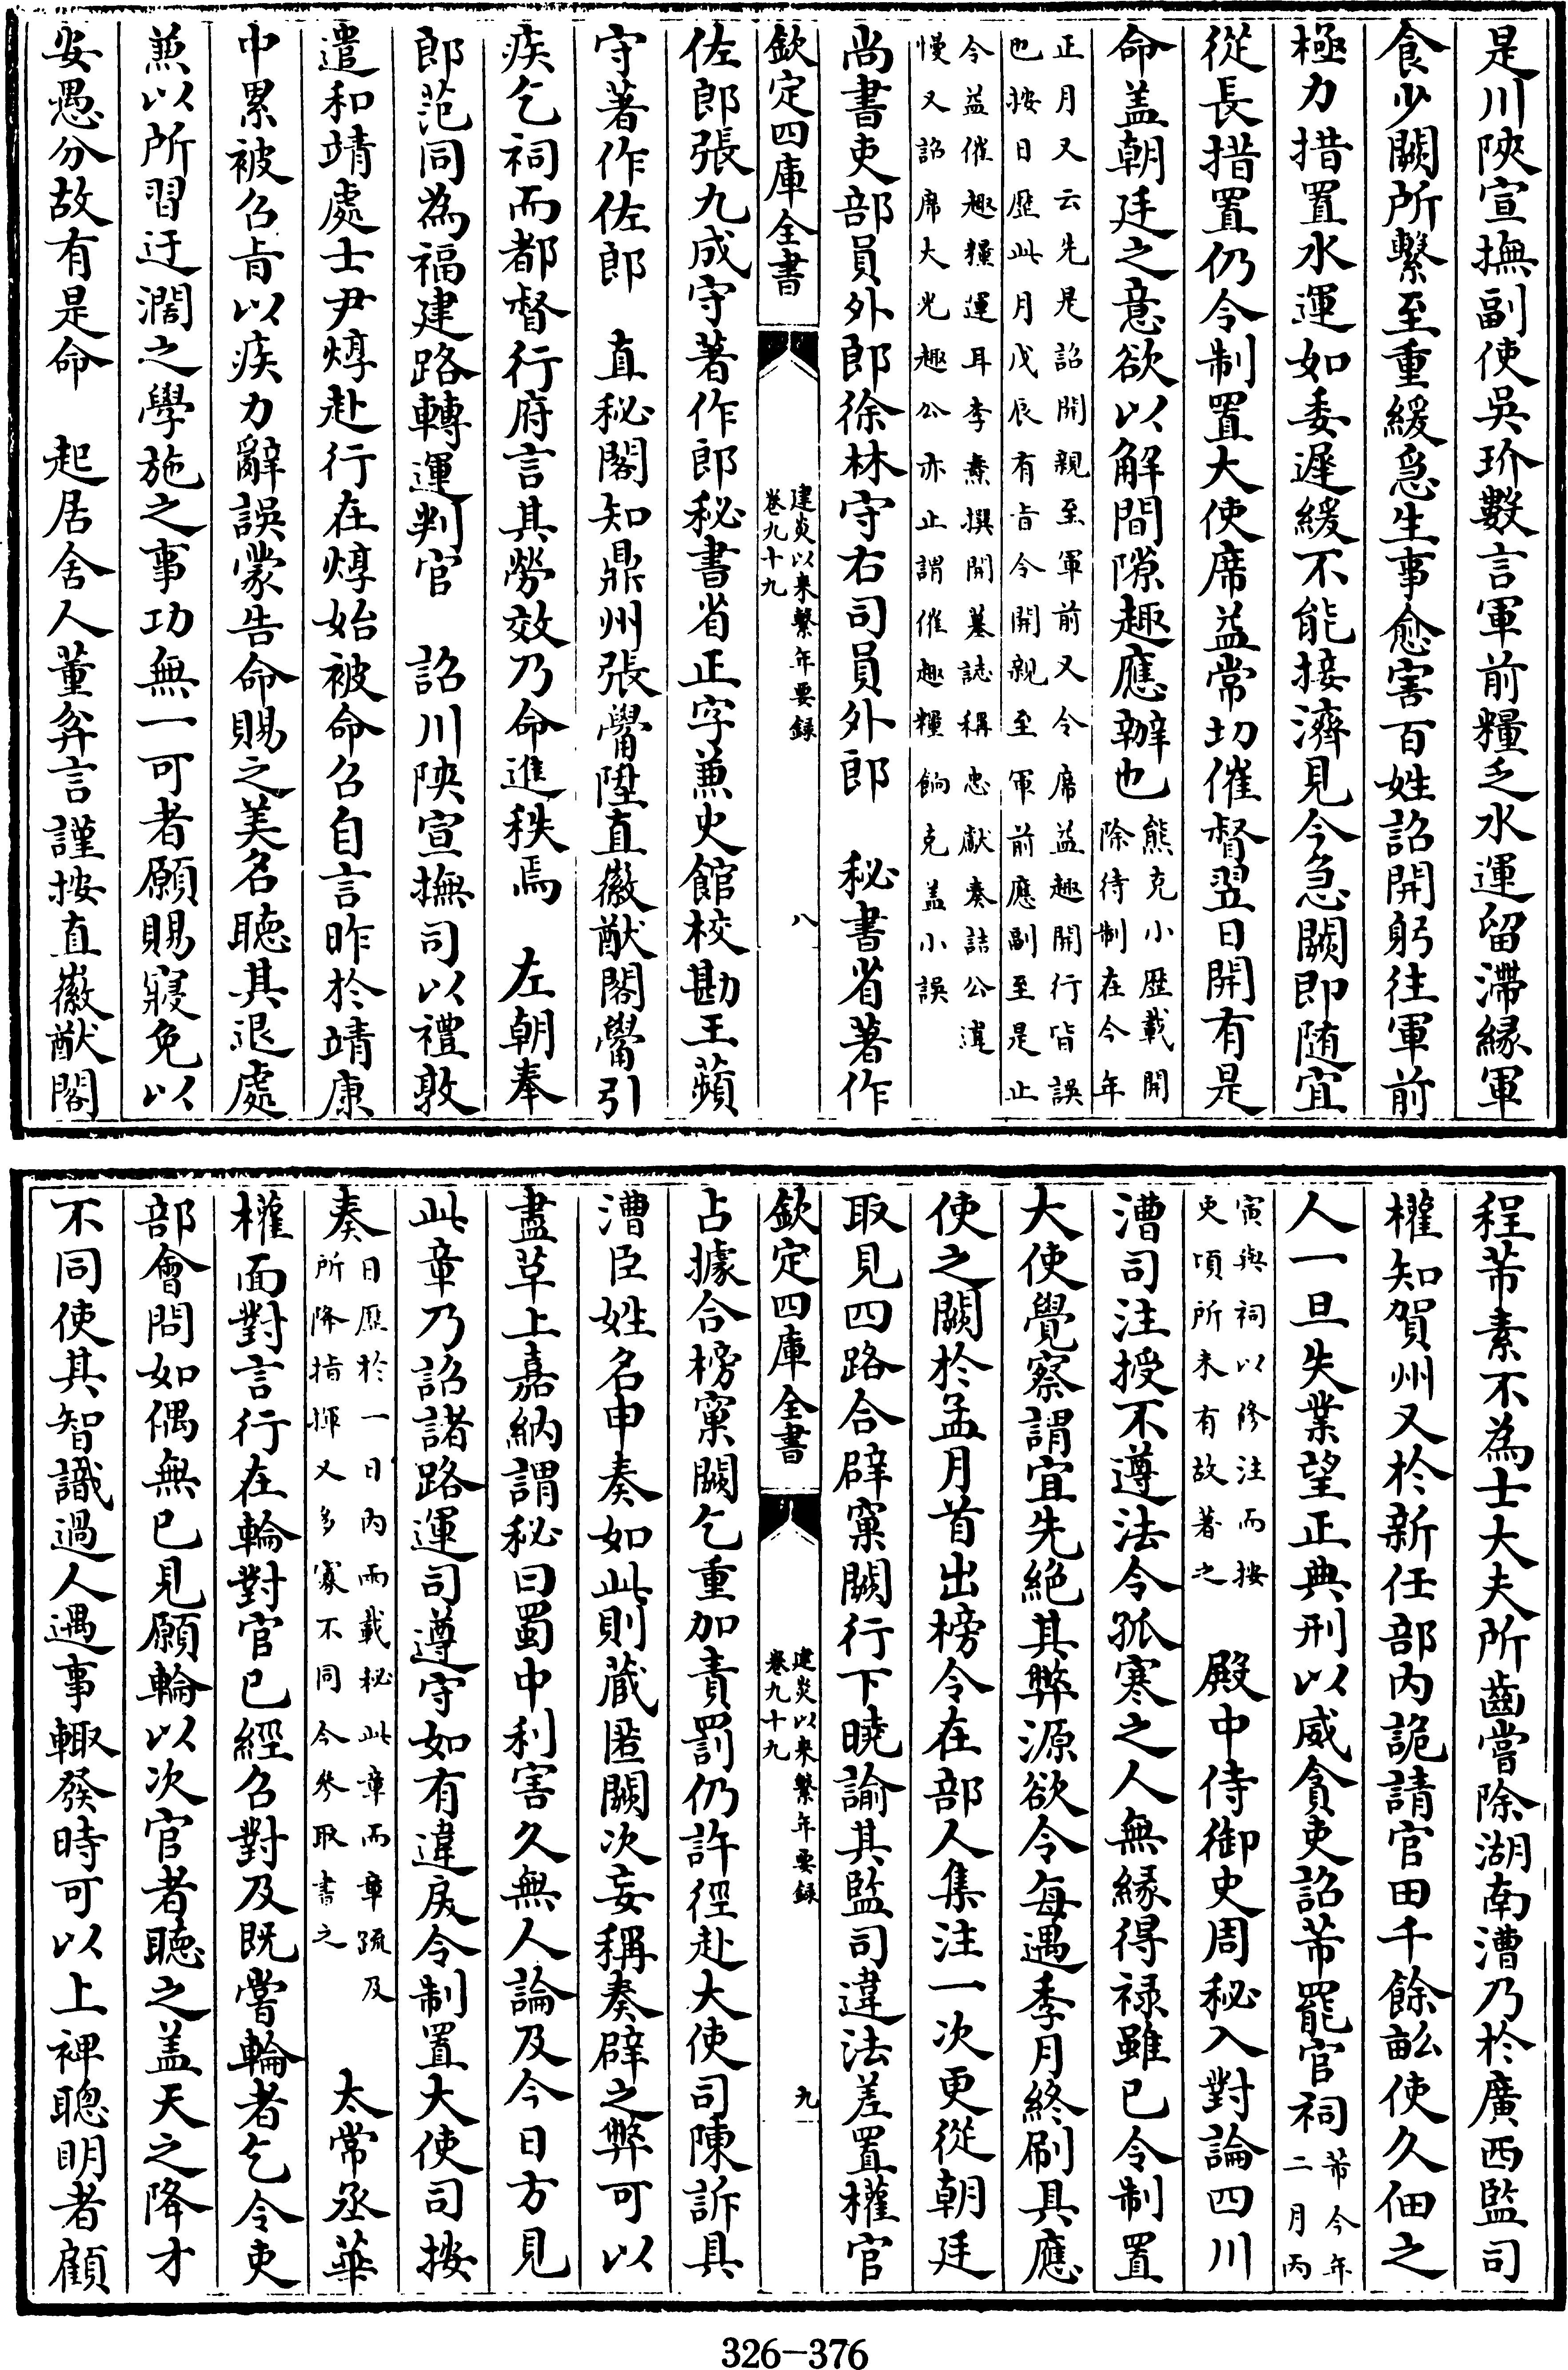 是川陜宣撫副使吳玠數言軍前糧乏水運留滯緣軍
食少闕所繫至重緩急生事愈害百姓詔開躬往軍前
極力措置水運如委遲緩不能接濟見今急闕即随宜
從長措置仍令制置大使席益常切催督翌日開有是
命盖朝廷之意欲以解間隙趣應辦也熊克小歴載開
除待制在今年
正月又云先是詔開親至軍前又令席益趣開行皆誤
也按日歴此月戊辰有旨令開親至軍前應副至是止
令益催趣糧運耳李燾撰開墓誌稱忠獻奏詰公違
慢又詔席大光趣公亦止謂催趣糧餉克盖小誤
尚書吏部員外郎徐林守右司員外郎　秘書省著作
欽定四庫全書
建炎以來繫年要録
卷九十九
八
佐郎張九成守著作郎秘書省正字兼史館校勘王蘋
守著作佐郎　直秘閣知鼎州張觷陞直徽猷閣觷引
疾乞祠而都督行府言其勞效乃命進秩焉　左朝奉
郎范同為福建路轉運判官　詔川陜宣撫司以禮敦
遣和靖處士尹焞赴行在焞始被命召自言昨於靖康
中累被召㫖以疾力辭誤蒙告命賜之美名聽其退處
兼以所習迂濶之學施之事功無一可者願賜寢免以
安愚分故有是命　起居舍人董弅言謹按直徽猷閣
程芾素不為士大夫所齒嘗除湖南漕乃於廣西監司
權知賀州又於新任部内詭請官田千餘畝使久佃之
人一旦失業望正典刑以威貪吏詔芾罷官祠芾今年
二月丙
寅與祠以修注而按
史頃所未有故著之　殿中侍御史周秘入對論四川
漕司注授不遵法令孤寒之人無緣得禄雖已令制置
大使覺察謂宜先絕其弊源欲令每遇季月終刷具應
使之闕於孟月首出榜令在部人集注一次更從朝廷
取見四路合辟窠闕行下曉諭其監司違法差置權官
欽定四庫全書
建炎以來繫年要録
卷九十九
九
占據合榜窠闕乞重加責罰仍許徑赴大使司陳訴具
漕臣姓名申奏如此則藏匿闕次妄稱奏辟之弊可以
盡草上嘉納謂秘曰蜀中利害久無人論及今日方見
此章乃詔諸路運司遵守如有違戾令制置大使司按
奏日厯於一日内兩載秘此章而章疏及
所降指揮又多寡不同今參取書之　太常丞華
權面對言行在輪對官已經召對及既嘗輪者乞令吏
部會問如偶無已見願輪以次官者聽之盖天之降才
不同使其智識過人遇事輙發時可以上裨聰明者顧
326-376